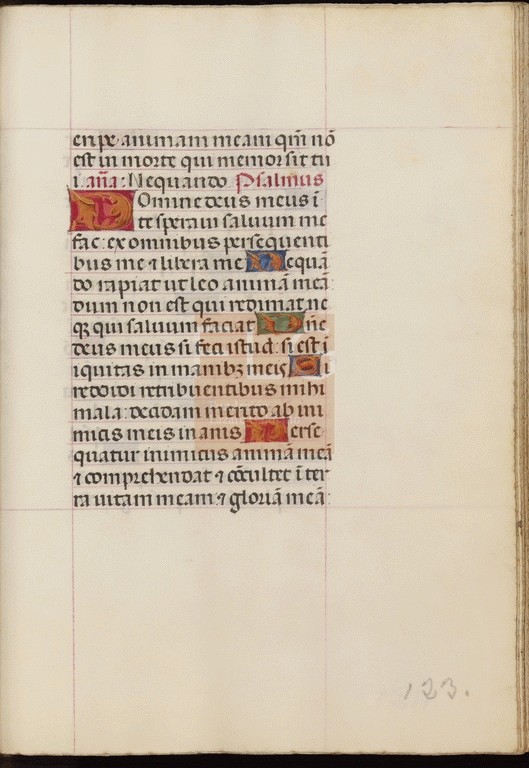 eripe animam meam qm̄ nō
est in morte qui memor sit tu
i. aña: Nequando Psalmus
Domine deus meus ī
te speravi saluum me
fac: ex omnibus persequenti
bus me ⁊ libera me Nequā
do rapiat ut leo animā mea
dum non est qui redimat ne
qꝫ qui saluum faciat Dñe
deus meus si feci istud: si est ī
iquitas in manibꝫ meis Si
reddidi retribuentibus mihi
mala: decidam merito ab ini
micis meis inanis Perse
quatur inimicus animā meā
⁊ comprehendat ⁊ cōculcet ī ter
ra uitam meam ⁊ gloriā meā:
123.